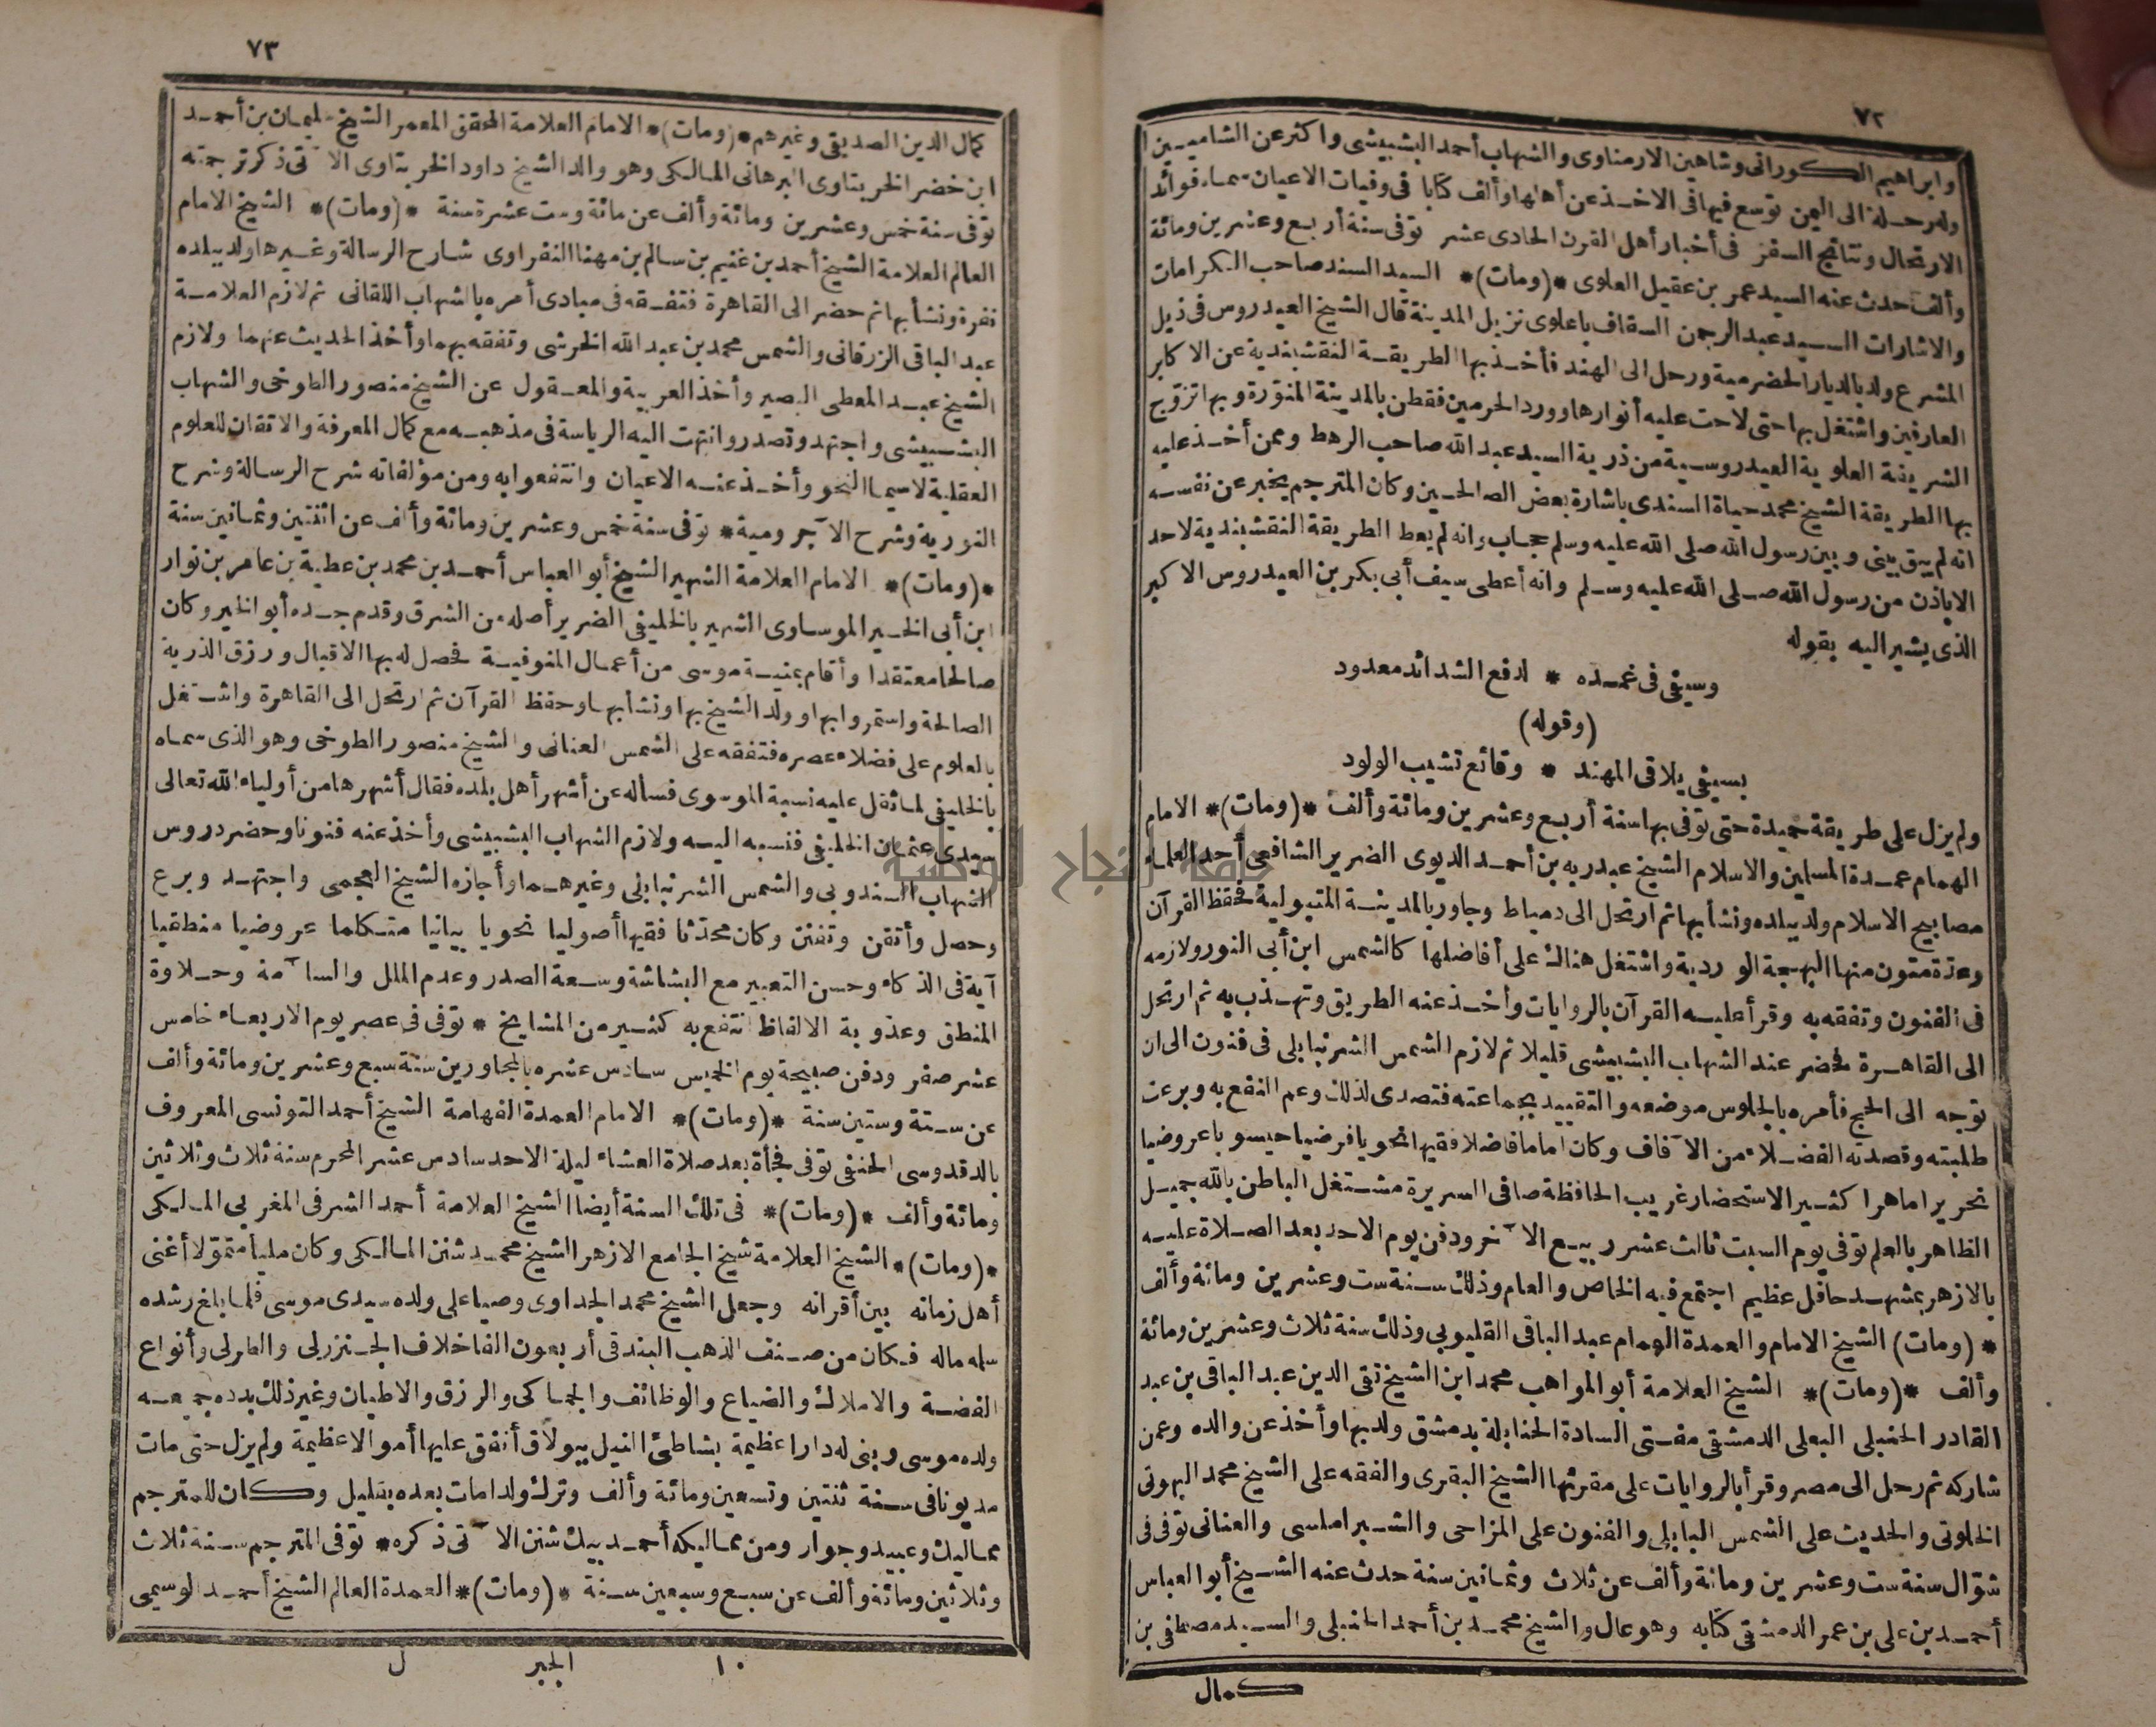 ٧٢
وابراهيم الكورانى وشاهين الارمناوى والشهاب أحمد البشبيشى واكثر عن الشاميين
وله رحلة الى اليمن توسع فيها فى الاخذ عن أهلها وألف كتابا فى وفيات الاعيان سماه فوائد
الارتحال ونتائج السفر فى أخبار أهل القرن الحادى عشر توفى سنة أربع وعشرين ومائة
وألف حدث عنه السيد عمر بن عقيل العلوى *(ومات)* السيد السند صاحب الكرامات
والاشارات السيد عبد الرحمن السقاف باعلوى نزيل المدينة قال الشيخ العيدروس فى ذيل
المشرع ولد بالديار الحضرمية ورحل الى الهند فأخذ بها الطريقة النقشبندية عن الاكابر
العارفين واشتغل بها حتى لاحت عليه أنوارها وورد الحرمين فقطن بالمدينة المنورة وبها تزوج
الشريفة العلوية العيدروسية من ذرية السيد عبد الله صاحب الرهط وممن أخذ عليه
بها الطريقة الشيخ محمد حياة السندى باشارة بعض الصالحين وكان المترجم يخبر عن نفسه
انه لم يبق بينى وبين رسول الله صلى الله عليه وسلم حجاب وانه لم يعط الطريقة النقشبندية لاحد
الا باذن من رسول الله صلى الله عليه وسلم وانه أعطى سيف أبى بكر بن العيدروس الاكبر
الذى يشير اليه بقوله
وسيفى فى غمده * لدفع الشدائد معدود
(وقوله)
بسيفى يلاقى المهند * وقائع تشيب الولود
ولم يزل على طريقة حميدة حتى توفى بها سنة أربع وعشرين ومائة وألف *(ومات)* الامام
الهمام عمدة المسلين والاسلام الشيخ عبد ربه بن أحمد الديوى الضرير الشافعى أحد العلماء
مصابيح الاسلام ولد ببلده ونشأ بها ثم ارتحل الى دمياط وجاور بالمدينة المتبولية فحفظ القرآن
وعدة متون منها البهجة الوردية واشتغل هناك على أفاضلها كالشمس ابن أبى النور ولازمه
فى الفنون وتفقه به وقرأ عليه القرآن بالروايات وأخذ عنه الطريق وتهذب به ثم ارتحل
الى القاهرة فحضر عند الشهاب البشبيشى قليلا ثم لازم الشمس الشرنبابلى فى فنون الى ان
توجه الى الحج فأمره بالجلوس موضعه والتقييد بجماعته فتصدى لذلك وعم النفع به وبرعت
طلبته وقصدته الفضلاء من الآفاق وكان اماما فاضلا فقيها نحويا فرضيا حيسوبا عروضيا
نحريرا ماهرا كثير الاستحضار غريب الحافظة صافى السريرة مشتغل الباطن بالله جميل
الظاهر بالعلم توفى يوم السبت ثالث عشر ربيع الآخر ودفن يوم الاحد بعد الصلاة عليه
بالازهر بمشهد حافل عظيم اجتمع فيه الخاص والعام وذلك سنة ست وعشرين ومائة وألف
*(ومات) الشيخ الامام والعمدة الهمام عبد الباقى القليوبى وذلك سنة ثلاث وعشرين ومائة
وألف *(ومات)* الشيخ العلامة أبو المواهب محمد ابن الشيخ تقى الدين عبد الباقى بن عبد
القادر الحنبلى البعلى الدمشقى مفتى السادة الحنابلة بدمشق ولد بها وأخذ عن والده وعمن
شاركه ثم رحل الى مصر وقرأ بالروايات على مقرئها الشيخ البقرى والفقه على الشيخ محمد البهوتى
الخلوتى والحديث على الشمس البابلى والفنون على المزاحى والشبراملسى والعنانى توفى فى
شوال سنة ست وعشرين ومائة وألف عن ثلاث وثمانين سنة حدث عنه الشيخ أبو العباس
أحمد بن على بن عمر الدمشقى كتابه وهو عال والشيخ محمد بن أحمد الحنبلى والسيد مصطفى بن
كمال
٧٣
كمال الدين الصديقى وغيرهم *(ومات)* الامام العلامة المحقق المعمر الشيخ سليمان بن أحمد
ابن خضر الخربتاوى البرهانى المالكى وهو والد الشيخ داود الخربتاوى الآتى ذكر ترجمته
توفى سنة خمس وعشرين ومائة وألف عن مائة وست عشرة سنة *(ومات)* الشيخ الامام
العالم العلامة الشيخ أحمد بن غنيم بن سالم بن مهنا النفراوى شارح الرسالة وغيرها ولد ببلده
نفرة ونشأ بها ثم حضر الى القاهرة فتفقه فى مبادى أمره بالشهاب اللقانى ثم لازم العلامة
عبد الباقى الزرقانى والشمس محمد بن عبد الله الخرشى وتفقه بهما وأخذ الحديث عنهما ولازم
الشيخ عبد المعطى البصير وأخذ العربية والمعقول عن الشيخ منصور الطوخى والشهاب
البشبيشى واجتهد وتصدر وانتهت اليه الرياسة فى مذهبه مع كمال المعرفة والاتقان للعلوم
العقلية لاسيما النحو وأخذ عنه الاعيان وانتفعوا به ومن مؤلفاته شرح الرسالة وشرح
النورية وشرح الآجرومية* توفى سنة خمس وعشرين ومائة وألف عن اثنتين وثمانين سنة
*(ومات)* الامام العلامة الشهير الشيخ أبو العباس أحمد بن محمد بن عطية بن عامر بن نوار
ابن أبى الخير الموساوى الشهير بالخليفى الضرير أصله من الشرق وقدم جده أبو الخير وكان
صالحا معتقدا وأقام بمنية موسى من أعمال المنوفية فحصل له بها الاقبال ورزق الذرية
الصالحة واستمروا بها وولد الشيخ بها ونشأ بها وحفظ القرآن ثم ارتحل الى القاهرة واشتغل
بالعلوم على فضلاء عصره فتفقه على الشمس العنانى والشيخ منصور الطوخى وهو الذى سماه
بالخليفى لما ثقل عليه نسبة الموسوى فسأله عن أشهر أهل بلده فقال أشهرها من أولياء الله تعالى
سيدى عثمان الخليفى فنسبه اليه ولازم الشهاب البشبيشى وأخذ عنه فنونا وحضر دروس
الشهاب السندوبى والشمس الشرنبابلى وغيرهما وأجازه الشيخ العجمى واجتهد وبرع
وحصل وأتقن وتفنن وكان محدثا فقيها أصوليا نحويا بيانيا متكلما عروضيا منطقيا
آية فى الذكاء وحسن التعبير مع البشاشة وسعة الصدر وعدم الملل والسآمة وحلاوة
المنطق وعذوبة الالفاظ انتفع به كثير من المشايخ * توفى فى عصر يوم الاربعاء خامس
عشر صفر ودفن صبيحة يوم الخميس سادس عشره بالمجاورين سنة سبع وعشرين ومائة وألف
عن ستة وستين سنة *(ومات)* الامام العمدة الفهامة الشيخ أحمد التونسى المعروف
بالدقدوسى الحنفى توفى فجأة بعد صلاة العشاء ليلة الاحد سادس عشر المحرم سنة ثلاث وثلاثين
ومائة وألف *(ومات)* فى تلك السنة أيضا الشيخ العلامة أحمد الشرفى المغربى المالكى
*(ومات)* الشيخ العلامة شيخ الجامع الازهر الشيخ محمد شنن المالكى وكان مليا متمولا أغنى
أهل زمانه بين أقرانه وجعل الشيخ محمد الجداوى وصيا على ولده سيدى موسى فلما بلغ رشده
سلمه ماله فكان من صنف الذهب البندقى أربعون الفا خلاف الجنزرلى والطرلى وأنواع
الفضة والاملاك والضياع والوظائف والجماكى والرزق والاطيان وغير ذلك بدده جميعه
ولده موسى وبنى له دارا عظيمة بشاطئ النيل ببولاق أنفق عليها أموالا عظيمة ولم يزل حتى مات
مديونا فى سنة ثنتين وتسعين ومائة وألف وترك ولدا مات بعده بقليل وكان للمترجم
مماليك وعبيد وجوار ومن مماليكه أحمد بيك شنن الآتى ذكره* توفى المترجم سنة ثلاث
وثلاثين ومائة وألف عن سبع وسبعين سنة *(ومات)* العمدة العالم الشيخ أحمد الوسيمى
١٠ الجبر ل
جامعة النجاح الوطنية